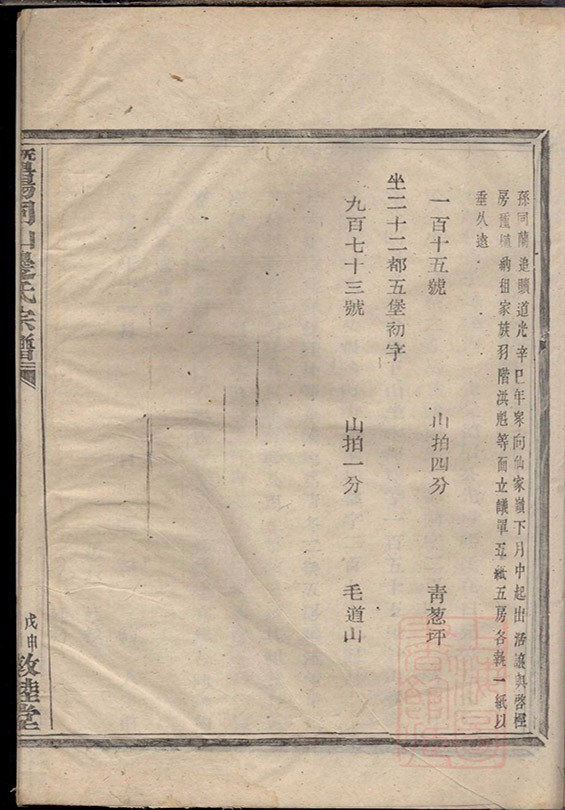 孫同蘭追贖道光辛巳年眾向仙家嶺下月中起出浩讓與啓極
房 納祖家族羽階洪彪等面立議單五紙五房各執一紙以
垂久遠
一百十五號 山拍四分 青葱坪
坐二十二都五堡初字
九百七十三號 山拍一分 毛道山
暨陽同山 氏宗譜
戊申 敦睦堂